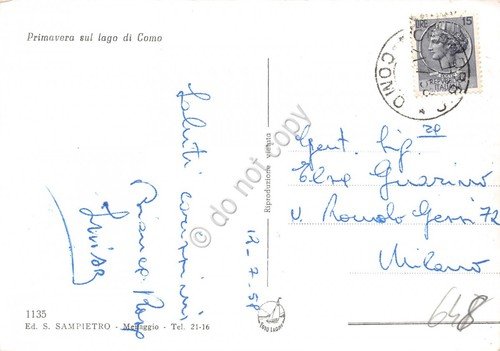 Primavera sul lago di Como
LIRE 15
Saluti carissimi
Bianca Rosa
Luisa
12-7-58
Riproduzione vietata
Gent. Sig.
Elsa Guarino
V. Romolo Gessi 72
Milano
648
1135
Ed. S. SAMPIETRO - Menaggio - Tel. 21-16
© do not copy